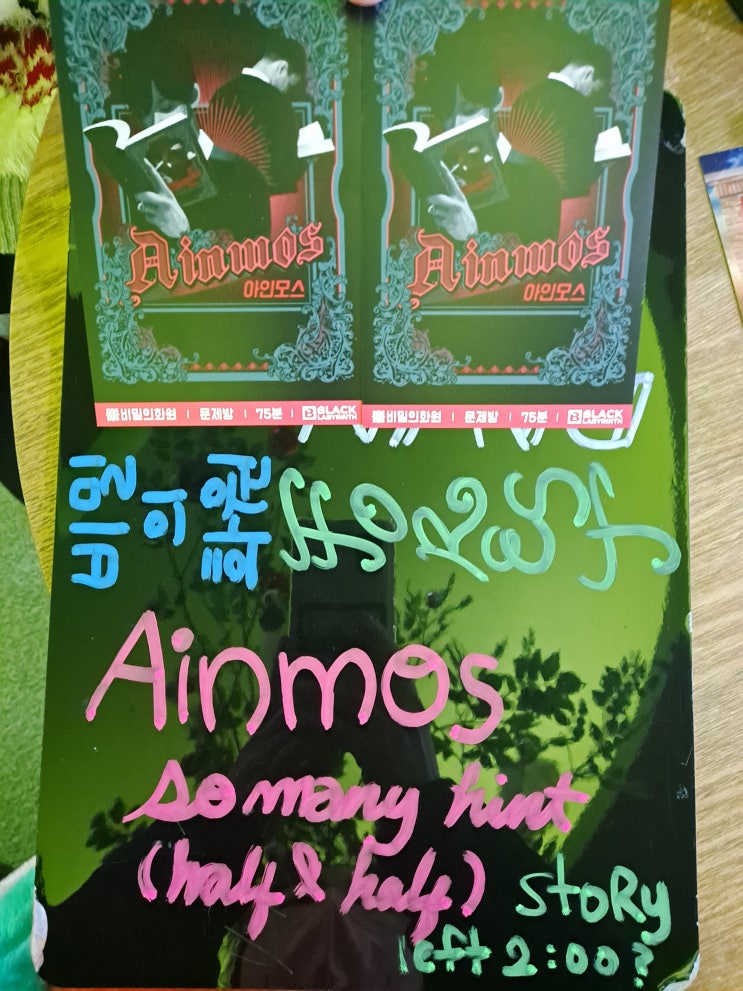 Ainmos Ainmos
아인모스 아인모스
비밀의화원 | 문제방 | 75분 | BLACK LABYRINTH 비밀의화원 | 문제방 | 75분 | BLACK LABYRINTH
비밀의화원 FOREST
Ainmos
so many hint
(half & half)
stoRy
left 2:00?